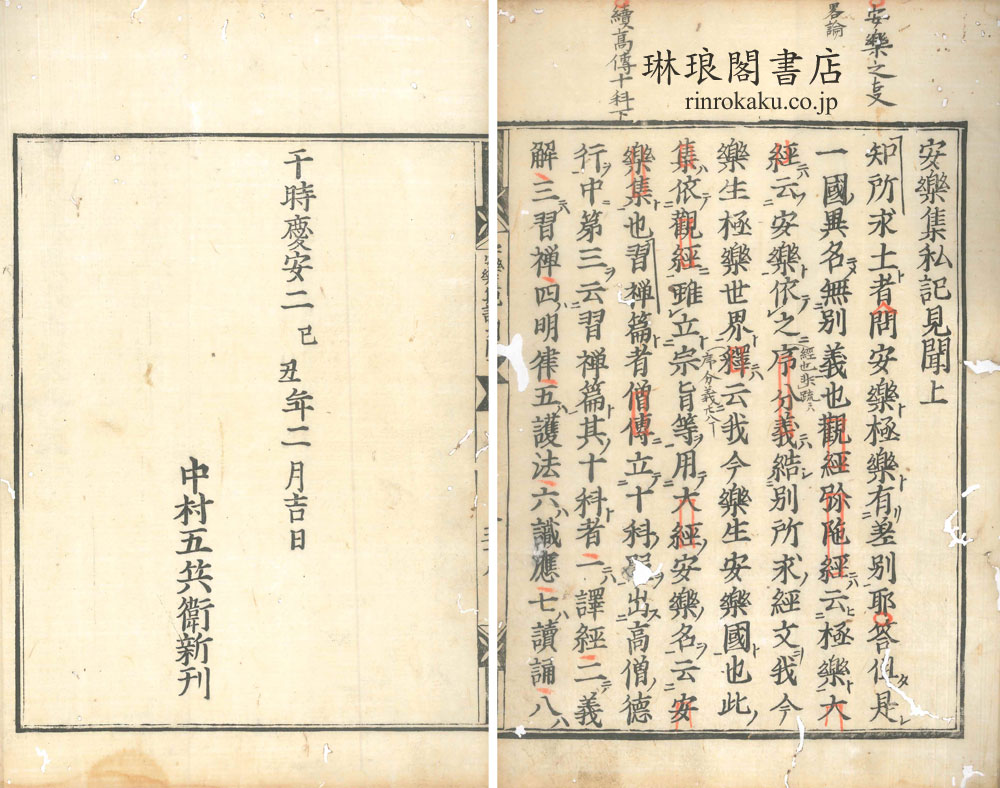 琳琅閣書店
rinrokaku.co.jp
安樂之支
畧論
續高傳十科下
安樂集私記見聞上
知所求土者問安樂極樂有差別耶答但是
一國異名無別義也觀經弥陁經云極樂大
經云安樂依之序分義結別所求經文我今
樂生極樂世界釋云我今樂生安樂國也此
集依觀經雖立宗旨等用大經安樂名云安
樂集也習禅篇者僧傳立十科出高僧德
行中第三云習禅篇其十科者一譯經二義
解三習禅四明律五護法六識應七讀誦八
于時慶安二己丑年二月吉日
中村五兵衛新刊